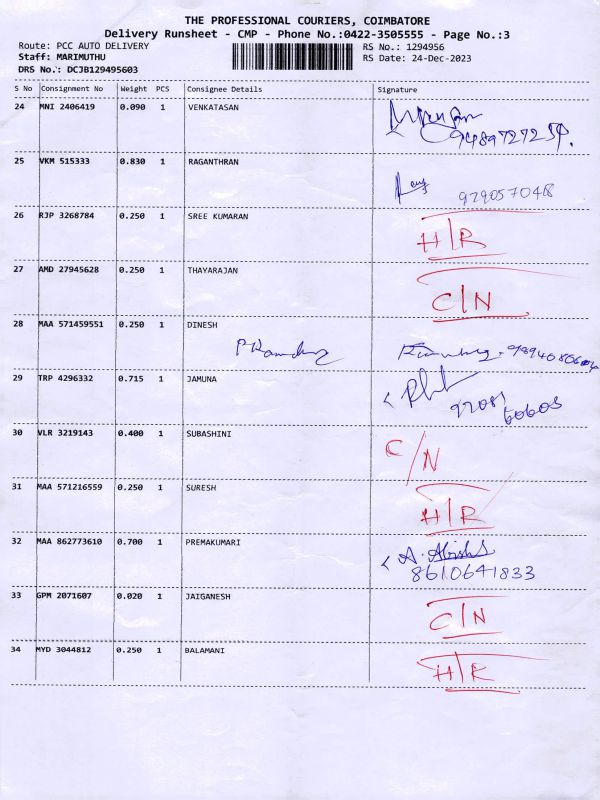 THE PROFESSIONAL COURIERS, COIMBATORE
Delivery Runsheet - CMP - Phone No.:0422-3505555 - Page No.:3
Route: PCC AUTO DELIVERY RS No.: 1294956
Staff: MARIMUTHU RS Date: 24-Dec-2023
DRS No.: DCJB129495603
S No Consignment No Weight PCS Consignee Details Signature
24 MNI 2406419 0.090 1 VENKATASAN
25 VKM 515333 0.830 1 RAGANTHRAN
26 RJP 3268784 0.250 1 SREE KUMARAN
H/R
27 AMD 27945628 0.250 1 THAYARAJAN
C/N
28 MAA 571459551 0.250 1 DINESH
29 TRP 4296332 0.715 1 JAMUNA
30 VLR 3219143 0.400 1 SUBASHINI
C/N
31 MAA 571216559 0.250 1 SURESH
H/R
32 MAA 862773610 0.700 1 PREMAKUMARI
8610641833
33 GPM 2071607 0.020 1 JAIGANESH
C/N
34 MYD 3044812 0.250 1 BALAMANI
H/R